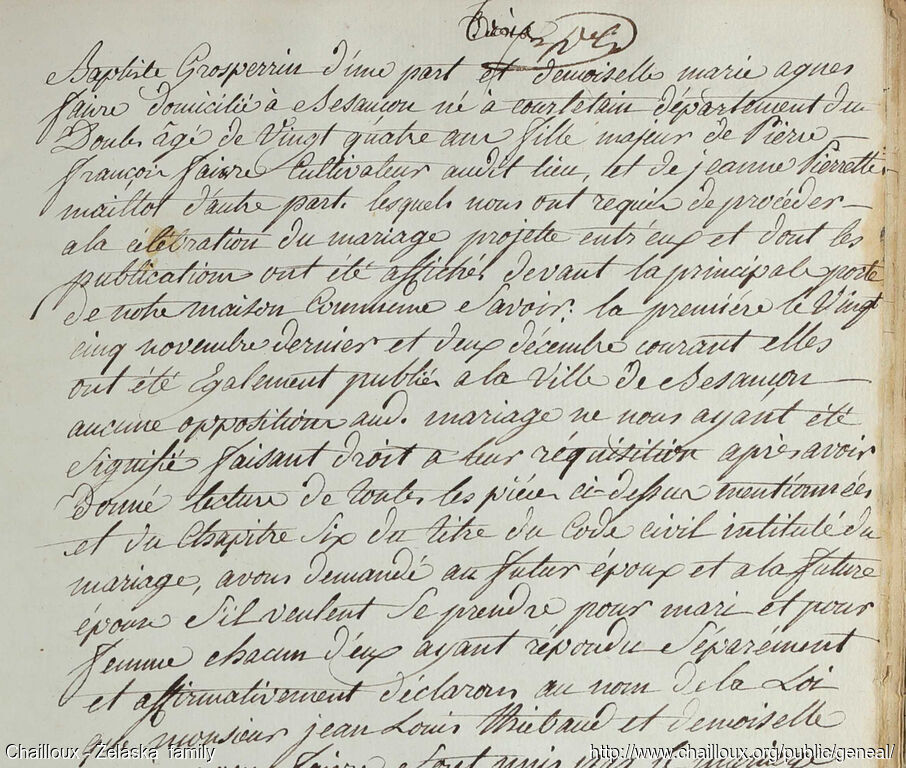 Baptiste Grosperrin d'une part et demoiselle marie agnes
faivre domicilié à Besancon né à courtetain département du
Doubs âgé de Vingt quatre ans fille majeur de Pierre
françois faivre Cultivateur audit lieu, et de jeanne Pierrette
maillot d'autre part. lesquels nous ont requis de procéder
a la célébration du mariage projetté entr'eux et dont les
publications ont été affichés devant la principale porte
de notre maison Commune Savoir: la première le Vingt
cinq novembre dernier et deux décembre courant elles
ont été Egalement publiés a la Ville de Besancon
aucune opposition aud. mariage ne nous ayant été
Signifié faisant droit a leur réquisition après avoir
Donné lecture de toutes les pièces ci-dessus mentionnées
et du Chapitre Six du titre du Code civil intitulé du
mariage, avons demandé au futur époux et a la future
épouse S'il veulent Se prendre pour mari et pour
femme chacun d'eux ayant répondu Séparément
et affirmativement déclarons au nom de la Loi
que monsieur jean Louis Thiebaud et demoiselle
faivre Sont unis
Chailloux - Zelaska family
http://www.chailloux.org/public/geneal/